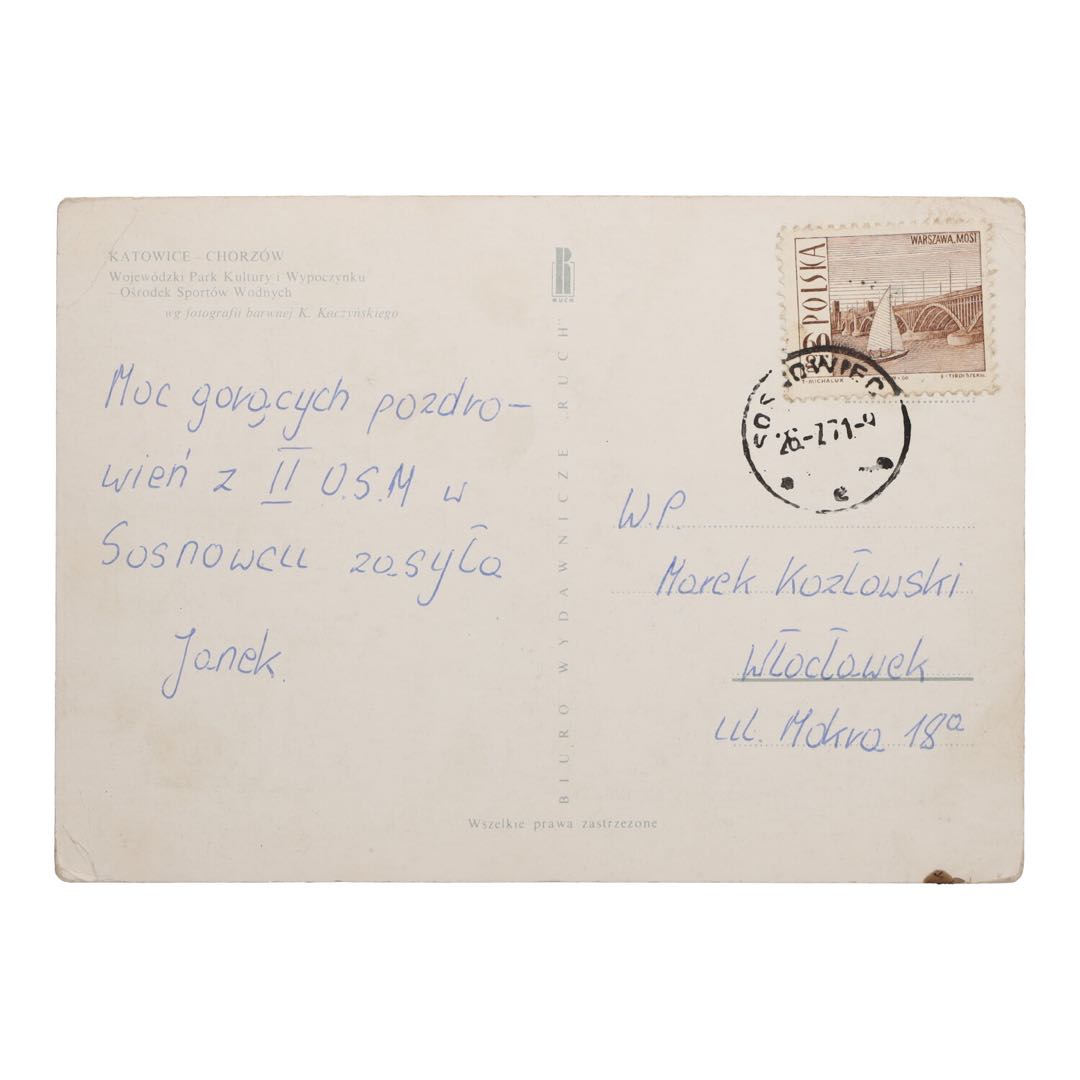 KATOWICE - CHORZÓW
Wojewódzki Park Kultury i Wypoczynku
- Ośrodek Sportów Wodnych
wg fotografii barwnej K. Kaczyńskiego
Moc gorących pozdro-
wień z II O.S.M w
Sosnowcu zasyła
Janek.
RUCH
BIURO WYDAWNICZE „RUCH"
Wszelkie prawa zastrzeżone
WARSZAWA, MOST
POLSKA
60
GR
T. MICHALUK
SOSNOWIEC
26-7.71-9
e
W.P.
Marek Kozłowski
Włocławek
ul. Mokra 18a